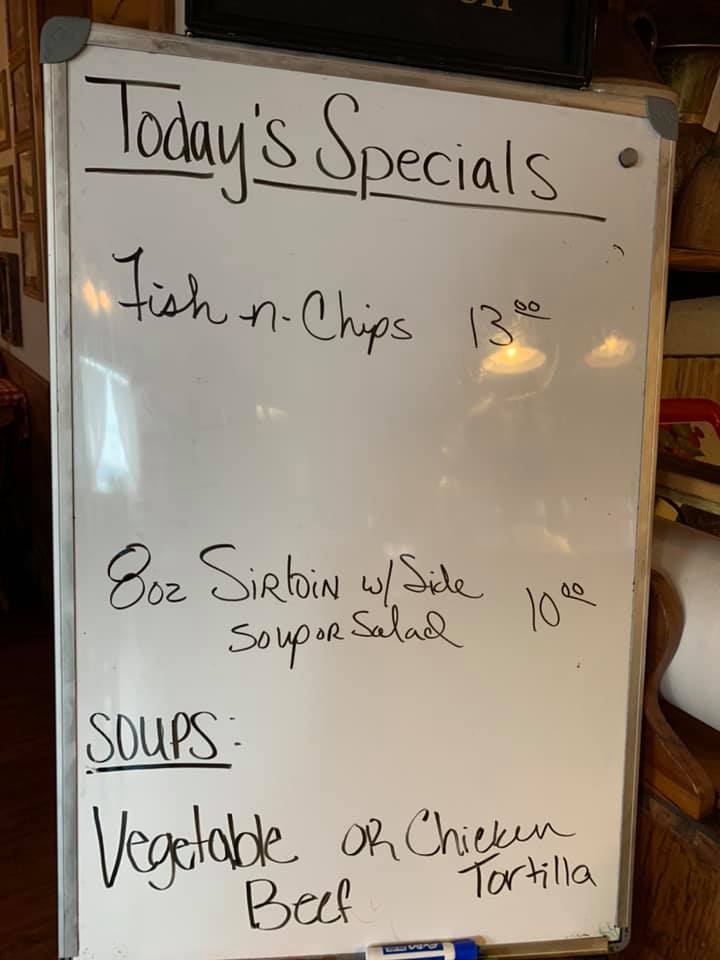 Today's Specials
Fish-n-Chips 13.00
8oz Sirloin w/Side 10.00
soup or Salad
SOUPS:
Vegetable OR Chicken
Beef Tortilla